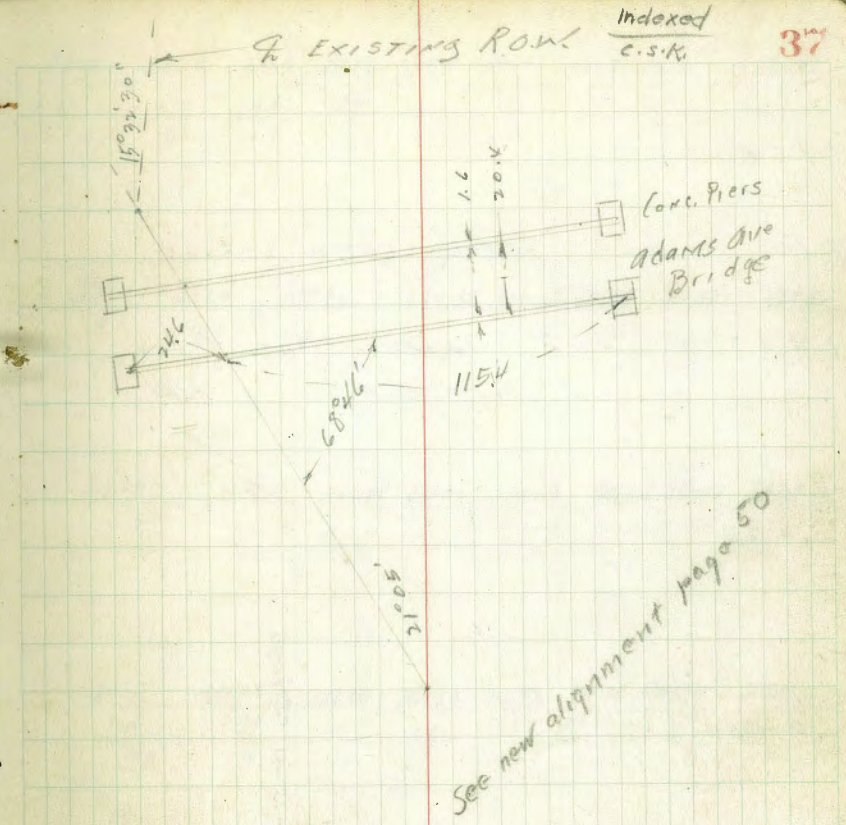 ℄ EXISTING R.O.W.
Indexed
c.s.k.
37
20.x
1.6
Conc. Piers
Adams Ave
Bridge
24.6
115.4
68°46'
21°05'
See new alignment page 50